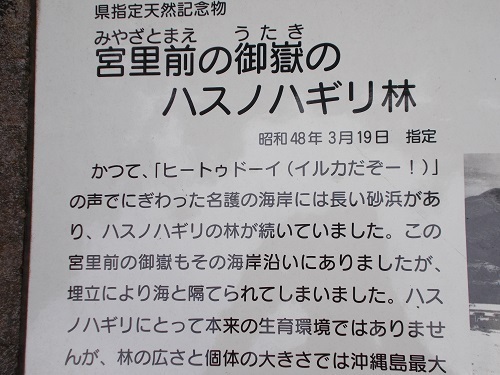 県指定天然記念物
みやざとまえ うたき
宮里前の御嶽の
ハスノハギリ林
昭和48年3月19日 指定
かつて、「ヒートゥドーイ(イルカだぞー!)」
の声でにぎわった名護の海岸には長い砂浜があ
り、ハスノハギリの林が続いていました。この
宮里前の御嶽もその海岸沿いにありましたが、
埋立により海と隔てられてしまいました。ハス
ノハギリにとって本来の生育環境ではありませ
んが、林の広さと個体の大きさでは沖縄島最大